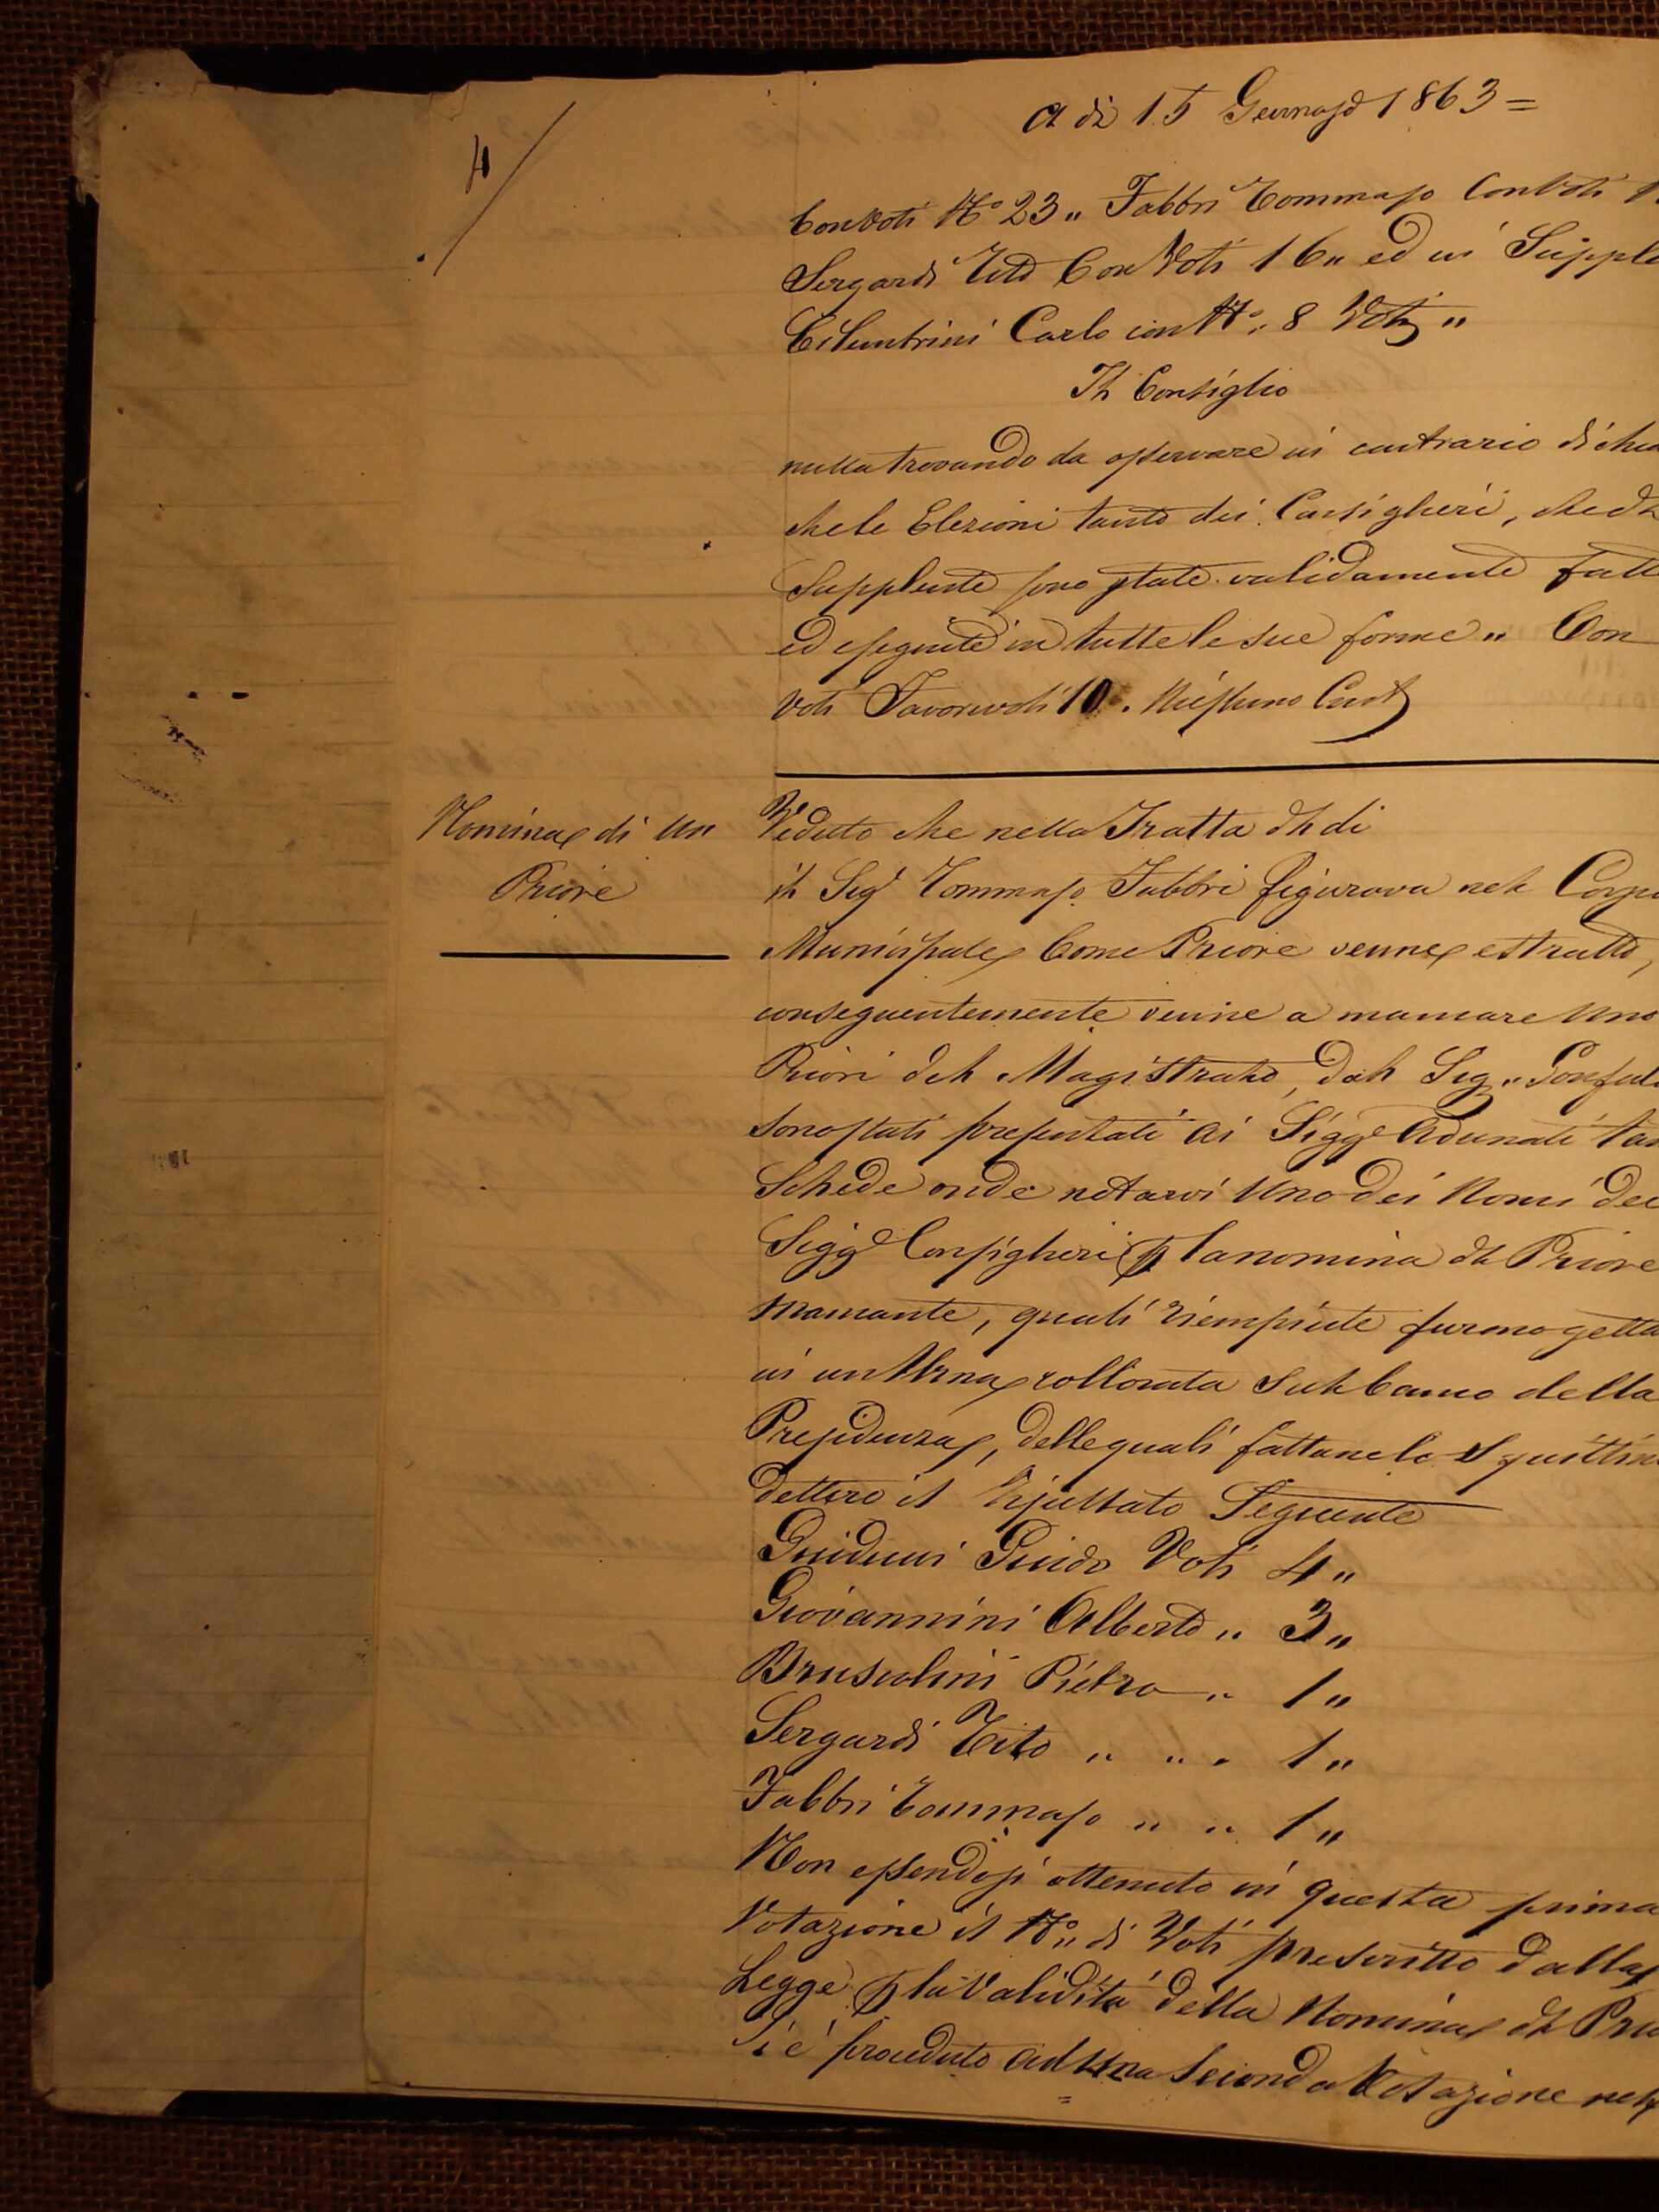 4
A dì 15 Gennajo 1863 =
Con Voti N.° 23 „ Fabbri Tommaso Con Voti N
Sergardi Tito Con Voti 16 „ ed in Supple
Carlo con N.° 8 Voti „
Il Consiglio
nulla trovando da osservare in contrario dichia
che le Elezioni tanto dei Consiglieri, che del
Supplente sono state validamente fatte
ed eseguite in tutte le sue forme „ Con
Voti Favorevoli 10. Nessuno Cont
Nomina di un
Priore
Veduto che nella Tratta del di
il Sigr Tommaso Fabbri figurava nel Corpo
Municipale Come Priore venne estratto,
conseguentemente venne a mancare Uno
Priori del Magistrato, dal Sig „ Gonfal
sono stati presentati ai Sigg.i Adunati tan
Schede onde notarvi Uno dei Nomi dei
Sigg.i Consiglieri p la nomina del Priore
mancante, quali riempiute furono getta
in un Urna collocata sul banco della
Presidenza, delle quali fattane lo Squittin
dettero il Resultato Seguente
Guiducci Guido Voti 4 „
Giovannini Alberto „ 3 „
Bruscolini Pietro „ 1 „
Sergardi Tito „ „ „ 1 „
Fabbri Tommaso „ „ 1 „
Non essendosi ottenuto in questa prima
Votazione il N.° di Voti prescritto dalla
Legge p la Validità della Nomina del Prio
Si è proceduto ad Una Seconda Votazione nel